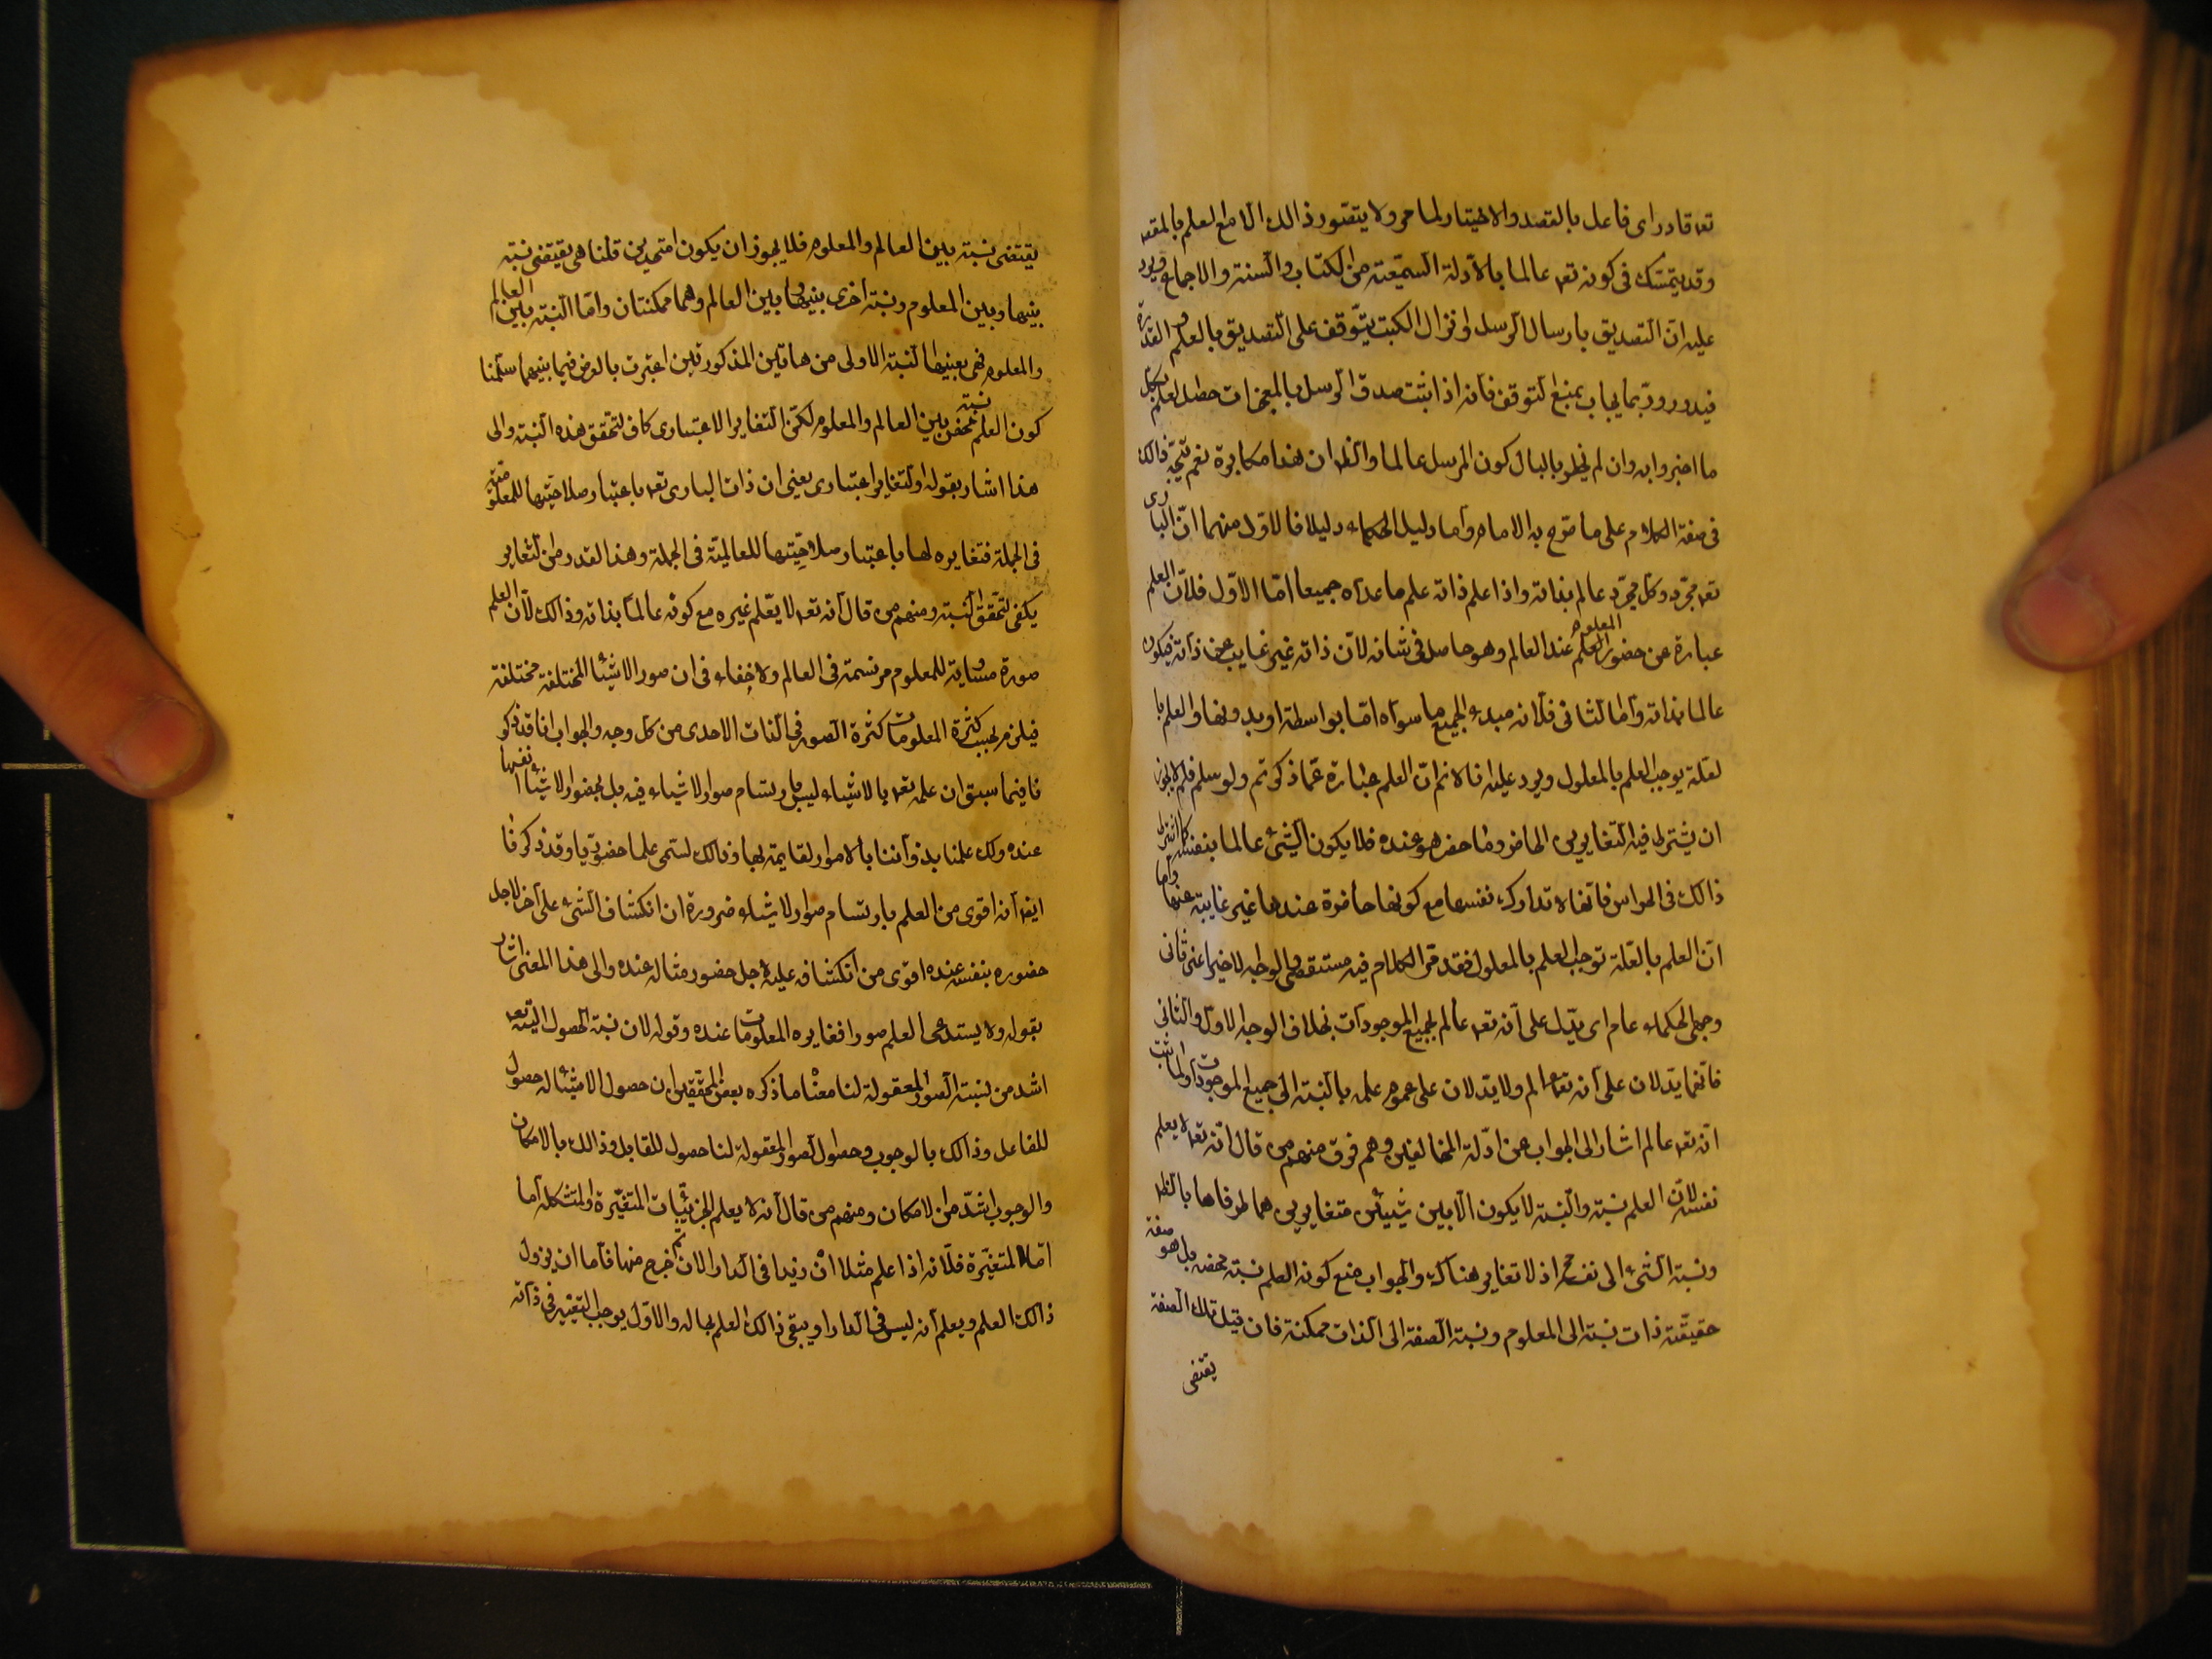 تعه قادر اى فاعل بالقصد والاختيار لما مر ولا يتصور ذالك الا مع العلم بالمقصد
وقد يتمسك فى كونه تعه عالما بالادلة السمعية من الكتاب والسنة والاجماع ويرد
عليه ان التصديق بارسال الرسل وانزال الكتب يتوقف على التصديق بالعلم والقدرة
فيدور وربما يجاب بمنع التوقف فانه اذا ثبت صدق الرسل بالمعجزات حصل العلم بكل
ما اخبروا به وان لم يخطر بالبال كون المرسل عالما والظه ان هذا مكابرة نعم يتجه ذالك
فى صفة الكلام على ما صرح به الامام واما دليل الحكماء دليلا فالاول منهما ان البارى
تعه مجرد وكل مجرد عالم بذاته واذا علم ذاته علم ما عداه جميعا اما الاول فلان العلم
عبارة عن حضور المعلوم عند العالم وهو حاصل فى شانه لان ذاته غير غايب عن ذاته فيكون
عالما بذاته واما الثانى فلانه مبدء لجميع ما سواه اما بواسطة او بدونها والعلم با
لعلة يوجب العلم بالمعلول ويرد عليه انا لا نم ان العلم عبارة عما ذكرتم ولو سلم فلم لا يجوز
ان يشترط فيه التغاير بين الحاضر وما حضر هو عنده فلا يكون الشئ عالما بنفسه كما اشترط
ذالك فى الحواس فانها لا تدارك نفسها مع كونها حاضرة عندها غير غايبة عنها واما
ان العلم بالعلة توجب العلم بالمعلول فقد مر الكلام فيه مستقصى والوجه الاخير اعنى ثانى
وجهى الحكماء عام اى يدل على انه تعه عالم لجميع الموجودات بخلاف الوجه الاول والثانى
فانهما يدلان على انه تعه عالم ولا يدلان على عموم علمه بالنسبة الى جميع الموجودات ولما اثبت
انه تعه عالم اشار الى الجواب عن ادلة المخالفين وهم فرق منهم من قال انه تعه لا يعلم
نفسه لان العلم نسبة والنسبة لا يكون الا بين شيئين متغايرين هما طرفاها بالظه
ونسبة الشئ الى نفسه مح اذ لا تغاير هناك والجواب منع كون العلم نسبة محضه بل هو صفة
حقيقة ذات نسبة الى المعلوم ونسبة الصفة الى الذات ممكنة فان قيل تلك الصفة
يقتضى
يقتضى نسبة بين العالم والمعلوم فلا يجوز ان يكون امتحدين قلنا هى يقتضى نسبة
بينها وبين المعلوم ونسبة اخرى بينها وبين العالم وهما ممكنتان واما النسبة بين العالم
والمعلوم فهى بعينها النسبة الاولى من هاتين المذكورتين اعتبرت بالعرض فيما بينهما سلمنا
كون العلم نسبة محض بين العالم والمعلوم لكن التغاير الاعتبارى كاف لتحقق هذه النسبة والى
هذا اشار بقوله والتغاير اعتبارى يعنى ان ذات البارى تعه باعتبار صلاحيتها للمعلومية
فى الجملة فتغايره لها باعتبار صلاحيتها للعالمية فى الجملة وهذا القدر من التغاير
يكفى لتحقق النسبة ومنهم من قال انه تعه لا يعلم غيره مع كونه عالما بذاته وذالك لان العلم
صورة مساوية للمعلوم مرتسمة فى العالم ولا خفاء فى ان صور الاشياء المختلفة مختلفة
فيلزم بحسب كثرة المعلومات كثرة الصور فى الذات الاحدى من كل وجه والجواب انا قد ذكر
نا فيما سبق ان علمه تعه بالاشياء ليس بارتسام صور الاشياء فيه بل بحضور الاشياء انفسها
عنده ولك علمنا بذواتنا بالامور القايمة بها وذالك لسمى علما حضوريا وقد ذكرنا
ايضه انه اقوى من العلم بارتسام صور الاشياء ضرورة ان انكشاف الشئ على آخر لاجل
حضوره بنفسه عنده اقوى من انكشافه عليه لاجل حضور مثاله عنده والى هذا المعنى اشار
بقوله ولا يستدعى العلم صورا فغايره المعلومات عنده وقوله لان نسبة الحصول اليه تعه
اشد من نسبة الصور المعقولة لنا معناه ما ذكره بعض المحققين ان حصول الاشياء له حصول
للفاعل وذالك بالوجوب وحصول الصور المعقولة لنا حصول للقابل وذالك بالامكان
والوجوب اشد من الامكان ومنهم من قال انه لا يعلم الجزئيات المتغيرة والمتشكله اما
اما المتغيرة فلانه اذا علم مثلا ان زيدا فى الدار الان ثم خرج منها فاما ان يزول
ذالك العلم ويعلم انه ليس فى الدار او يبقى ذالك العلم بحاله والاول يوجب التغير فى ذاته